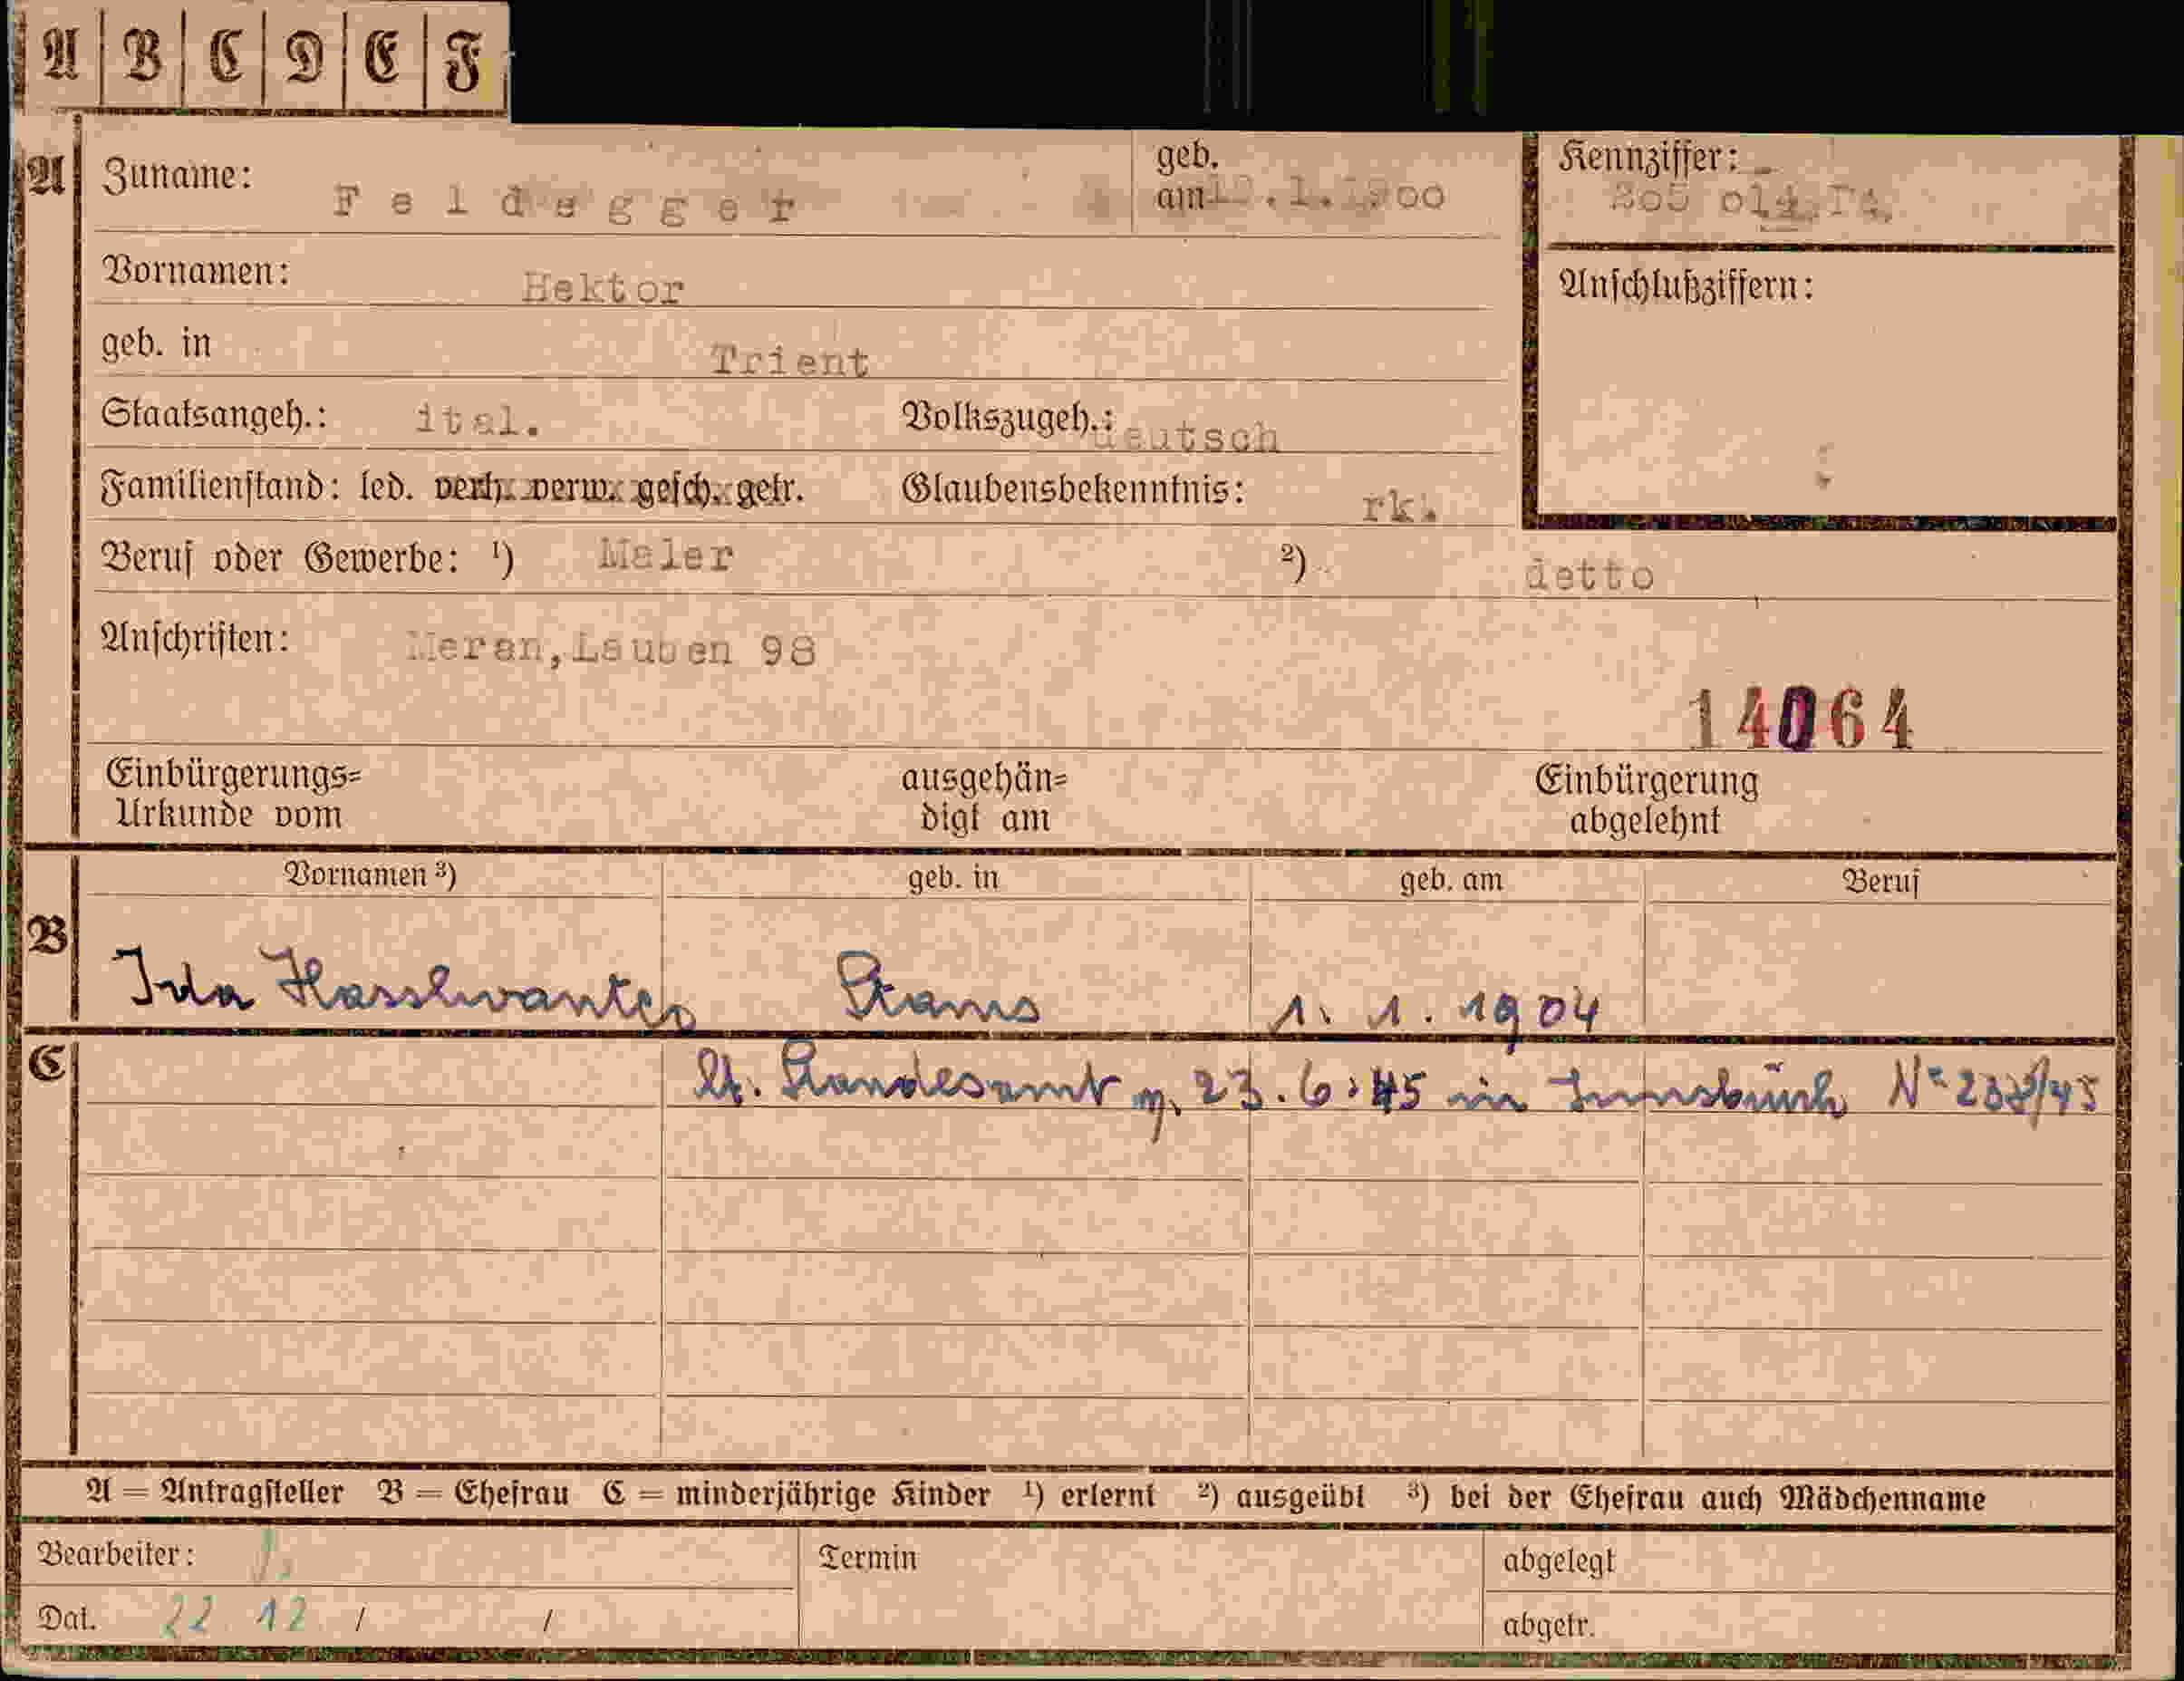 A B C D E F
A Zuname: Feldegger geb. am .1.1900 Kennziffer:
Vornamen: Hektor Anschlußziffern:
geb. in Trient
Staatsangeh.: ital. Volkszugeh.: deutsch
Familienstand: led. verh. verw. gesch. getr. Glaubensbekenntnis: rk.
Beruf oder Gewerbe: ¹) Maler ²) detto
Anschriften: Meran, Lauben 98
14064
Einbürgerungs= ausgehän= Einbürgerung
Urkunde vom digt am abgelehnt
Vornamen ³) geb. in geb. am Beruf
B Ida Hasslwanter Stams 1. 1. 1904
C lt. Standesamt 23. 6. 45 in Innsbruck
A = Antragsteller B = Ehefrau C = minderjährige Kinder ¹) erlernt ²) ausgeübt ³) bei der Ehefrau auch Mädchenname
Bearbeiter: Termin abgelegt
Dat. 22. 12 / / abgetr.